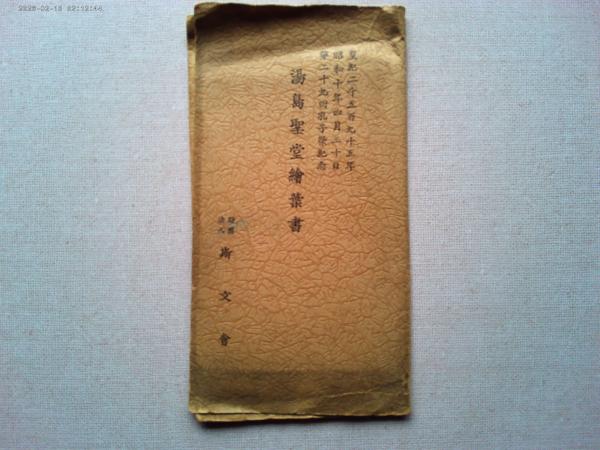 皇紀二千五百九十五年
昭和十年四月三十日
第二十九回孔子祭紀念
湯島聖堂繪葉書
財團
法人
斯文會